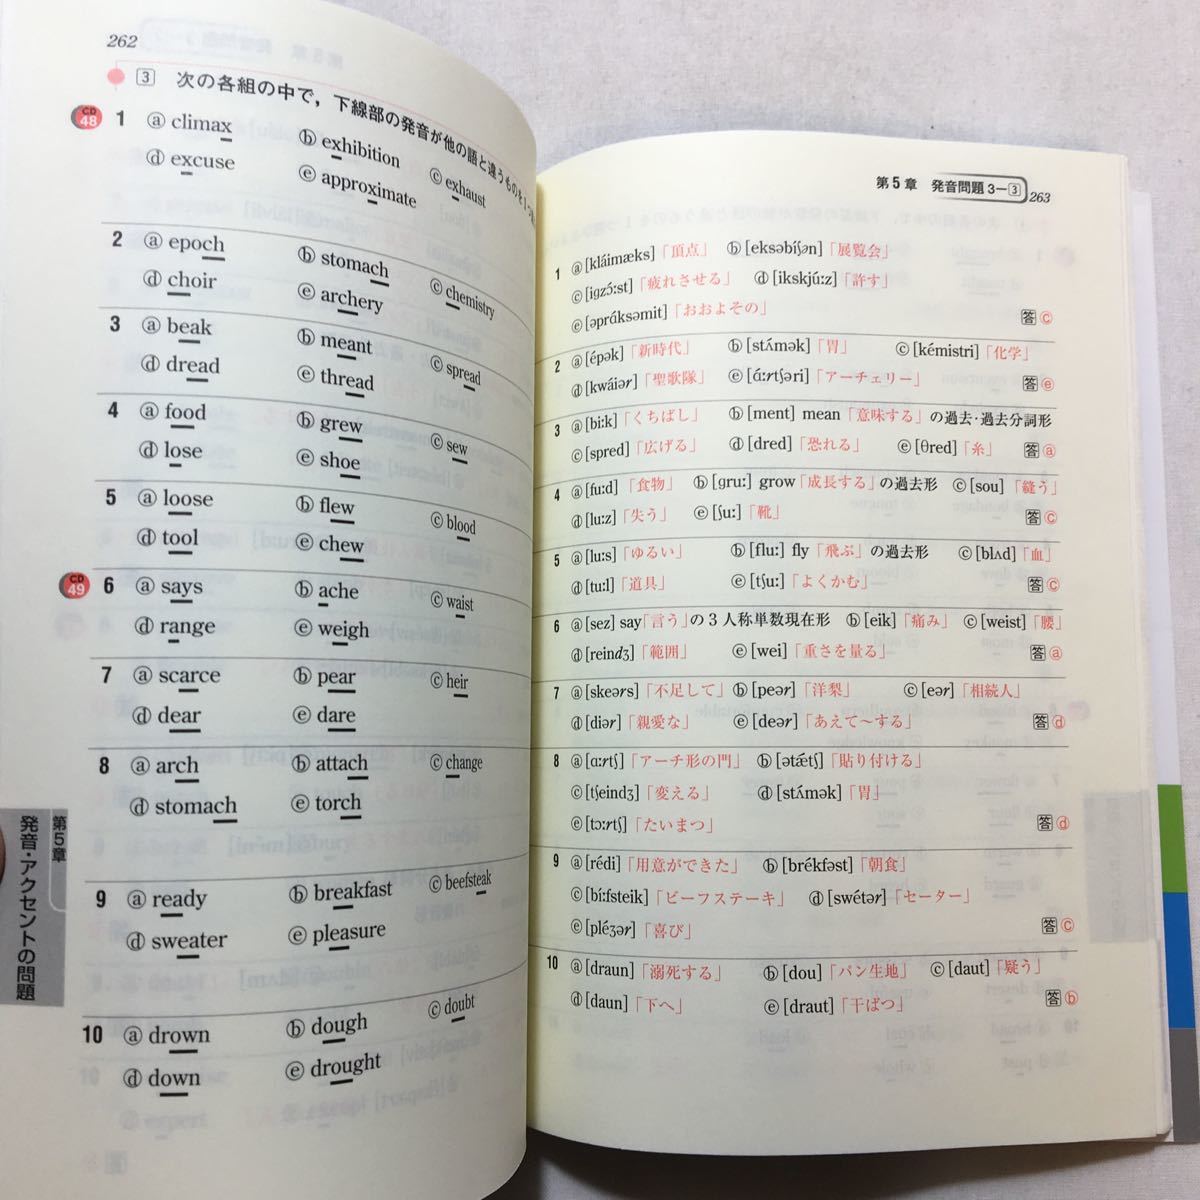 262
3 次の各組の中で，下線部の発音が他の語と違うものを1つ
CD 48
1 ⓐ climax ⓑ exhibition ⓒ exhaust
ⓓ excuse ⓔ approximate
2 ⓐ epoch ⓑ stomach ⓒ chemistry
ⓓ choir ⓔ archery
3 ⓐ beak ⓑ meant ⓒ spread
ⓓ dread ⓔ thread
4 ⓐ food ⓑ grew ⓒ sew
ⓓ lose ⓔ shoe
5 ⓐ loose ⓑ flew ⓒ blood
ⓓ tool ⓔ chew
CD 49
6 ⓐ says ⓑ ache ⓒ waist
ⓓ range ⓔ weigh
7 ⓐ scarce ⓑ pear ⓒ heir
ⓓ dear ⓔ dare
8 ⓐ arch ⓑ attach ⓒ change
ⓓ stomach ⓔ torch
9 ⓐ ready ⓑ breakfast ⓒ beefsteak
ⓓ sweater ⓔ pleasure
10 ⓐ drown ⓑ dough ⓒ doubt
ⓓ down ⓔ drought
第5章
発音・アクセントの問題
第5章 発音問題3－3 263
1 ⓐ [kláimæks]「頂点」 ⓑ [eksəbíʃən]「展覧会」
ⓒ [igzɔ́ːst]「疲れさせる」 ⓓ [ikskjúːz]「許す」
ⓔ [əpráksəmit]「おおよその」 答ⓒ
2 ⓐ [épək]「新時代」 ⓑ [stʌ́mək]「胃」 ⓒ [kémistri]「化学」
ⓓ [kwáiər]「聖歌隊」 ⓔ [ɑ́ːrtʃəri]「アーチェリー」 答ⓔ
3 ⓐ [biːk]「くちばし」 ⓑ [ment] mean「意味する」の過去・過去分詞形
ⓒ [spred]「広げる」 ⓓ [dred]「恐れる」 ⓔ [θred]「糸」 答ⓐ
4 ⓐ [fuːd]「食物」 ⓑ [gruː] grow「成長する」の過去形 ⓒ [sou]「縫う」
ⓓ [luːz]「失う」 ⓔ [ʃuː]「靴」 答ⓒ
5 ⓐ [luːs]「ゆるい」 ⓑ [fluː] fly「飛ぶ」の過去形 ⓒ [blʌd]「血」
ⓓ [tuːl]「道具」 ⓔ [tʃuː]「よくかむ」 答ⓒ
6 ⓐ [sez] say「言う」の3人称単数現在形 ⓑ [eik]「痛み」 ⓒ [weist]「腰」
ⓓ [reindʒ]「範囲」 ⓔ [wei]「重さを量る」 答ⓐ
7 ⓐ [skeərs]「不足して」 ⓑ [peər]「洋梨」 ⓒ [eər]「相続人」
ⓓ [diər]「親愛な」 ⓔ [deər]「あえて〜する」 答ⓓ
8 ⓐ [ɑːrtʃ]「アーチ形の門」 ⓑ [ətǽtʃ]「貼り付ける」
ⓒ [tʃeindʒ]「変える」 ⓓ [stʌ́mək]「胃」
ⓔ [tɔːrtʃ]「たいまつ」 答ⓓ
9 ⓐ [rédi]「用意ができた」 ⓑ [brékfəst]「朝食」
ⓒ [bíːfsteik]「ビーフステーキ」 ⓓ [swétər]「セーター」
ⓔ [pléʒər]「喜び」 答ⓒ
10 ⓐ [draun]「溺死する」 ⓑ [dou]「パン生地」 ⓒ [daut]「疑う」
ⓓ [daun]「下へ」 ⓔ [draut]「干ばつ」 答ⓑ